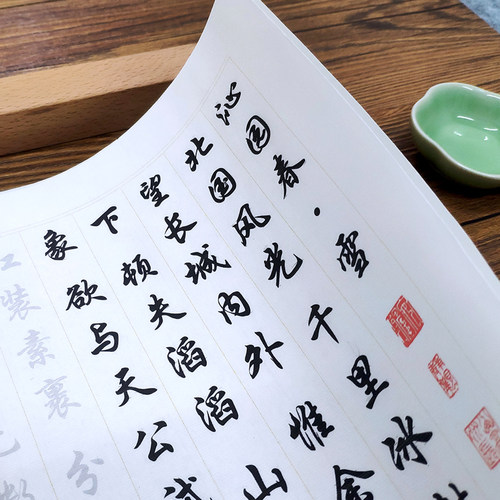 沁园春·雪
北国风光千里冰
望长城内外惟余
下顿失滔滔山
象欲与天公试
装素裹分